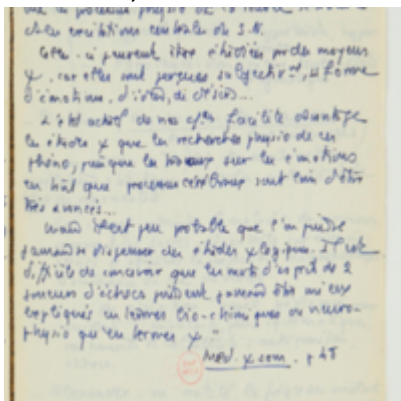 que ce processus physio de la
et des excitations centrales du S.N.
Celles-ci peuvent être étudiées par des moyens
χ, car elles sont perçues subjectivt, ss forme
d'émotions, d'idées, de désirs...
L'état actuel de nos c/ces facilite davantage
les études χ que les recherches physio de ces
phéno, puisque les travaux sur les émotions
en tant que processus cérébraux sont loin d'être
très avancés...
il est peu probable que l'on puisse
jamais se dispenser des études χlogiques. Il est
difficile de concevoir que les mots d'esprit de 2
joueurs d'échecs puissent jamais être mieux
expliqués en termes bio-chimiques ou neuro-
physio qu'en termes χ."
χ com. p 48